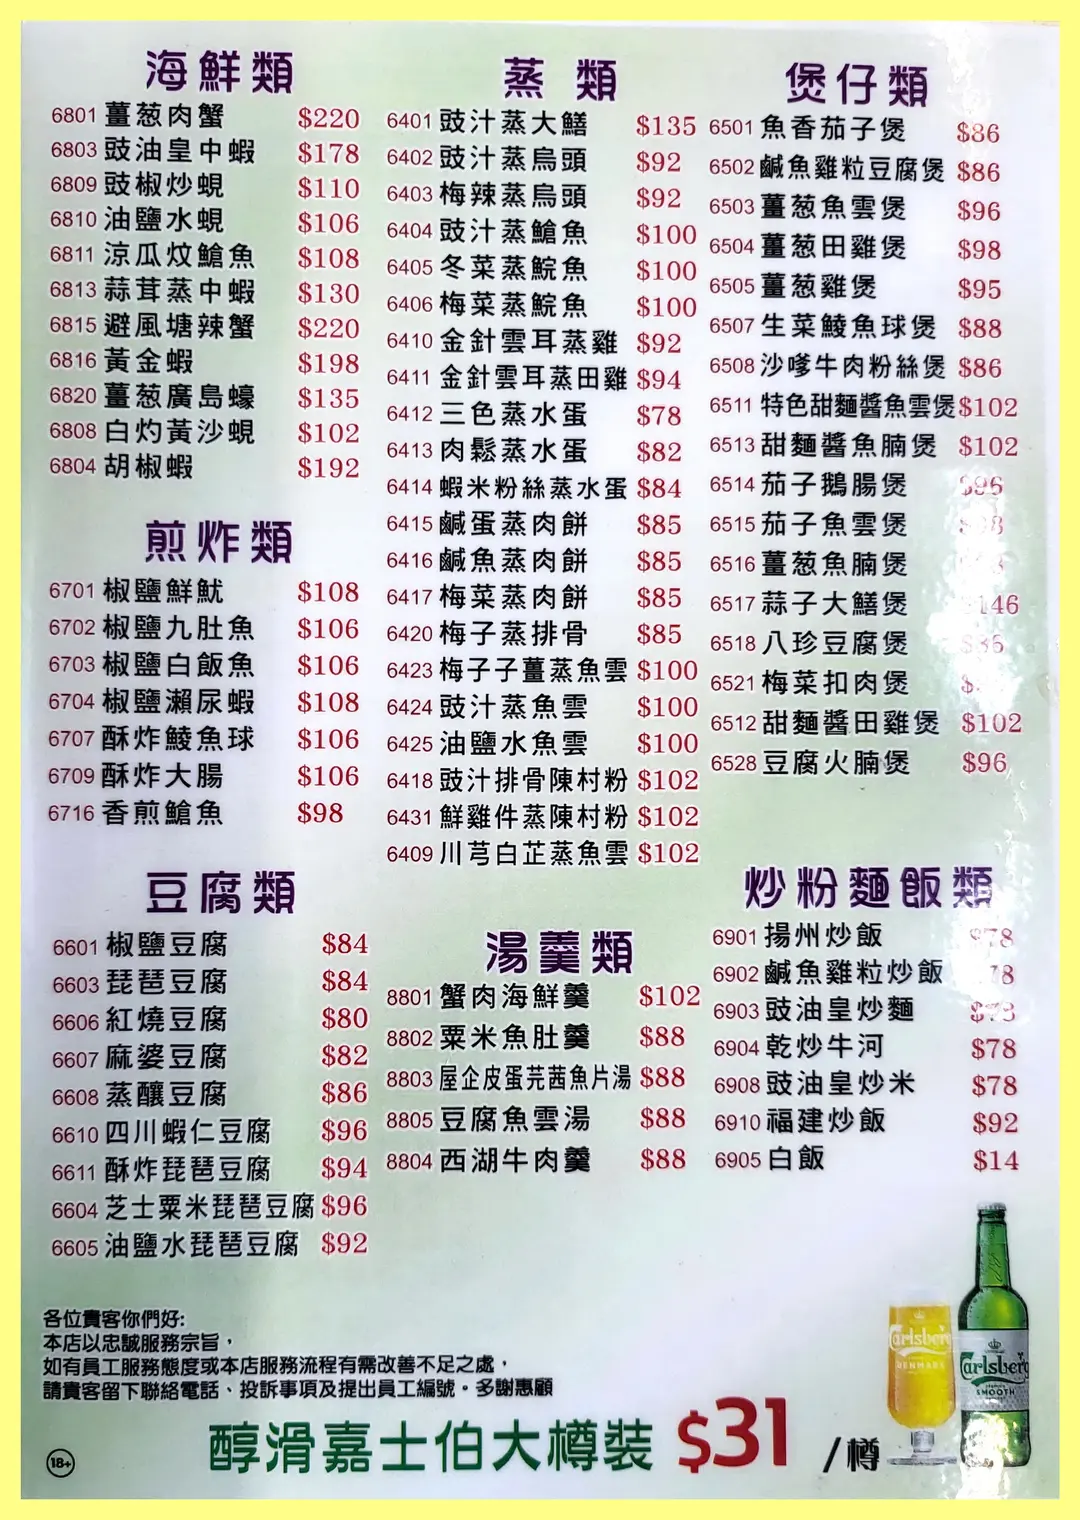 海鮮類
6801 薑葱肉蟹 $220
6803 豉油皇中蝦 $178
6809 豉椒炒蜆 $110
6810 油鹽水蜆 $106
6811 涼瓜炆鱠魚 $108
6813 蒜茸蒸中蝦 $130
6815 避風塘辣蟹 $220
6816 黃金蝦 $198
6820 薑葱廣島蠔 $135
6808 白灼黃沙蜆 $102
6804 胡椒蝦 $192
煎炸類
6701 椒鹽鮮魷 $108
6702 椒鹽九肚魚 $106
6703 椒鹽白飯魚 $106
6704 椒鹽瀨尿蝦 $108
6707 酥炸鯪魚球 $106
6709 酥炸大腸 $106
6716 香煎鱠魚 $98
豆腐類
6601 椒鹽豆腐 $84
6603 琵琶豆腐 $84
6606 紅燒豆腐 $80
6607 麻婆豆腐 $82
6608 蒸釀豆腐 $86
6610 四川蝦仁豆腐 $96
6611 酥炸琵琶豆腐 $94
6604 芝士粟米琵琶豆腐 $96
6605 油鹽水琵琶豆腐 $92
蒸類
6401 豉汁蒸大鱔 $135
6402 豉汁蒸烏頭 $92
6403 梅辣蒸烏頭 $92
6404 豉汁蒸鱠魚 $100
6405 冬菜蒸鯇魚 $100
6406 梅菜蒸鯇魚 $100
6410 金針雲耳蒸雞 $92
6411 金針雲耳蒸田雞 $94
6412 三色蒸水蛋 $78
6413 肉鬆蒸水蛋 $82
6414 蝦米粉絲蒸水蛋 $84
6415 鹹蛋蒸肉餅 $85
6416 鹹魚蒸肉餅 $85
6417 梅菜蒸肉餅 $85
6420 梅子蒸排骨 $85
6423 梅子子薑蒸魚雲 $100
6424 豉汁蒸魚雲 $100
6425 油鹽水魚雲 $100
6418 豉汁排骨陳村粉 $102
6431 鮮雞件蒸陳村粉 $102
6409 川芎白芷蒸魚雲 $102
湯羹類
8801 蟹肉海鮮羹 $102
8802 粟米魚肚羹 $88
8803 屋企皮蛋芫茜魚片湯 $88
8805 豆腐魚雲湯 $88
8804 西湖牛肉羹 $88
煲仔類
6501 魚香茄子煲 $86
6502 鹹魚雞粒豆腐煲 $86
6503 薑葱魚雲煲 $96
6504 薑葱田雞煲 $98
6505 薑葱雞煲 $95
6507 生菜鯪魚球煲 $88
6508 沙嗲牛肉粉絲煲 $86
6511 特色甜麵醬魚雲煲 $102
6513 甜麵醬魚腩煲 $102
6514 茄子鵝腸煲 $96
6515 茄子魚雲煲
6516 薑葱魚腩煲
6517 蒜子大鱔煲 $146
6518 八珍豆腐煲
6521 梅菜扣肉煲
6512 甜麵醬田雞煲 $102
6528 豆腐火腩煲 $96
炒粉麵飯類
6901 揚州炒飯 $78
6902 鹹魚雞粒炒飯
6903 豉油皇炒麵
6904 乾炒牛河 $78
6908 豉油皇炒米 $78
6910 福建炒飯 $92
6905 白飯 $14
各位貴客你們好:
本店以忠誠服務宗旨，
如有員工服務態度或本店服務流程有需改善不足之處，
請貴客留下聯絡電話、投訴事項及提出員工編號。多謝惠顧
18+
醇滑嘉士伯大樽裝 $31 /樽
Carlsberg
DENMARK
Carlsberg
SMOOTH